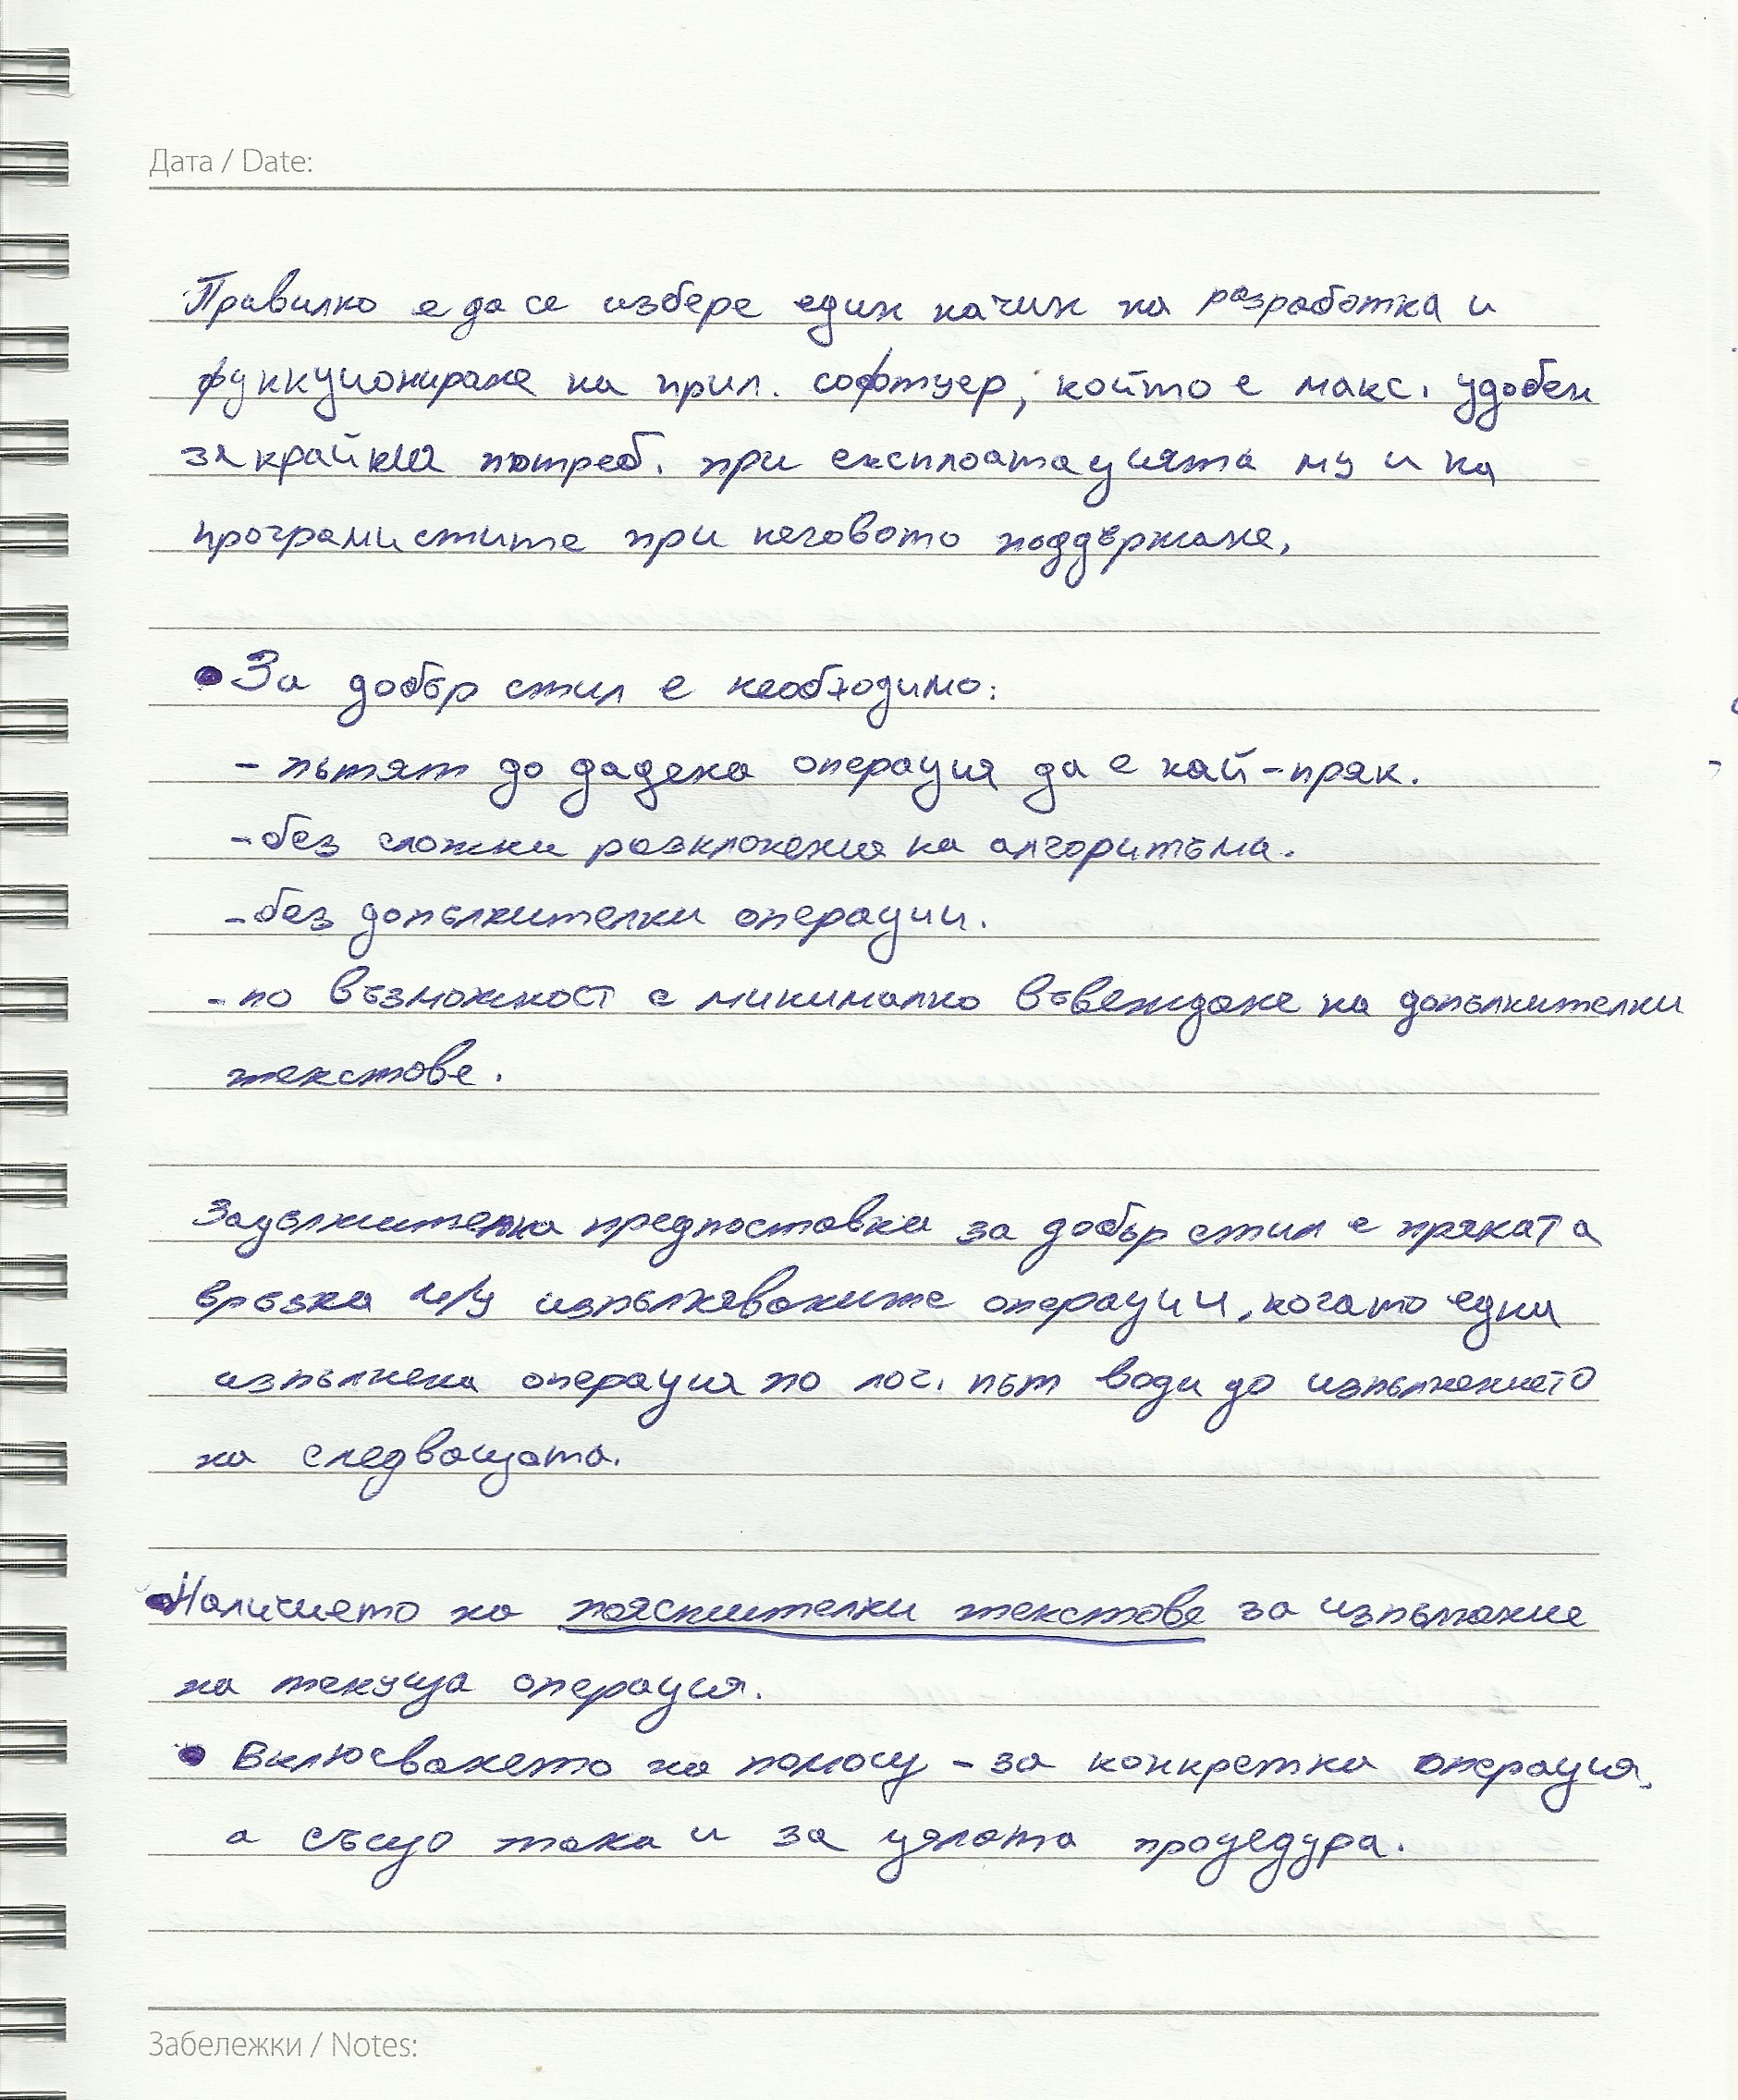 Дата / Date:
Правилно е да се избере един начин на разработка и
функциониране на прил. софтуер, който е макс. удобен
за крайния потреб. при експлоатацията му и на
програмистите при неговото поддържане.
• За добър стил е необходимо:
- пътят до дадена операция да е най-пряк.
- без сложни разклонения на алгоритъма.
- без допълнителни операции.
- по възможност с минимално въвеждане на допълнителни
текстове.
Задължителна предпоставка за добър стил е пряката
връзка м/у изпълняваните операции, когато една
изпълнена операция по лог. път води до изпълнението
на следващата.
• Наличието на пояснителни текстове за изпълнение
на текуща операция.
• Включването на помощ - за конкретна операция,
а също така и за цялата процедура.
Забележки / Notes: